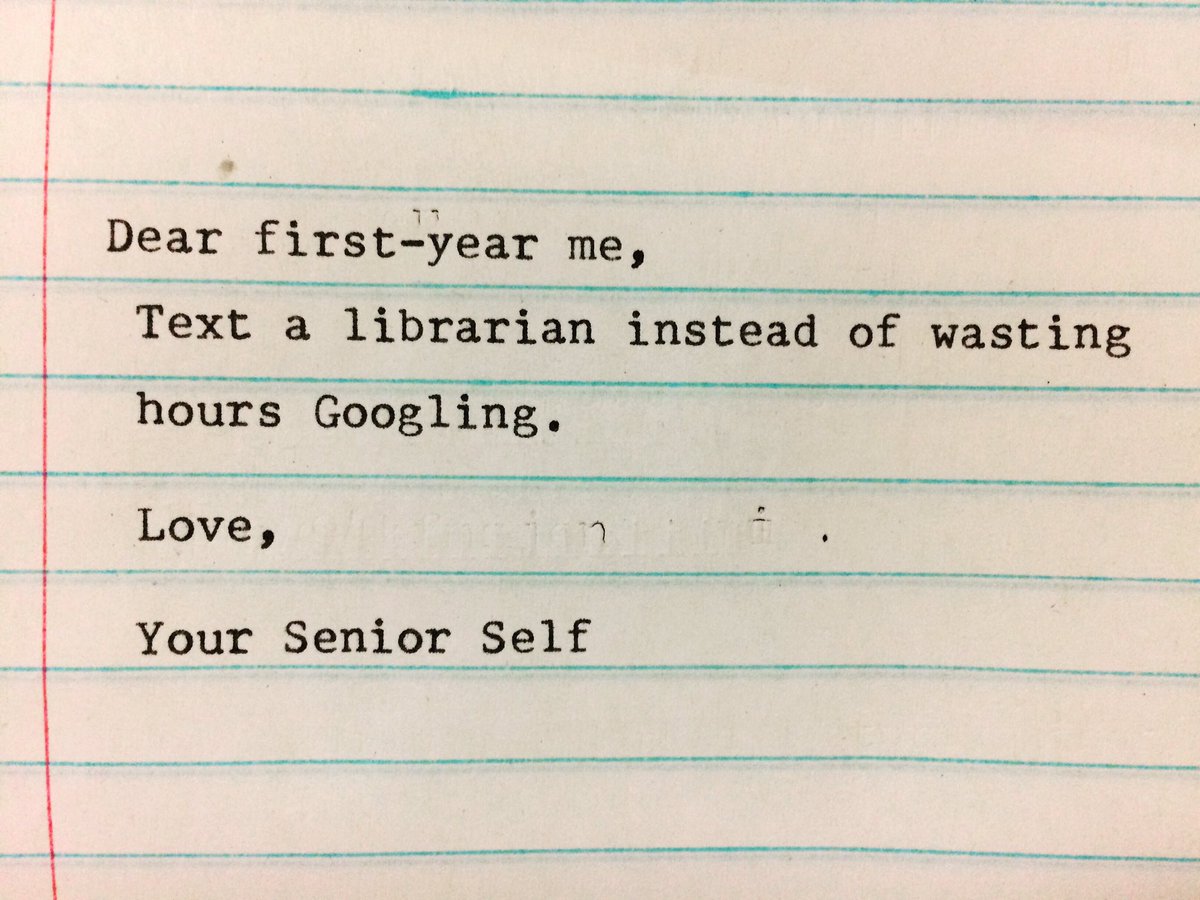 Dear first-year me,
Text a librarian instead of wasting
hours Googling.
Love,
Your Senior Self